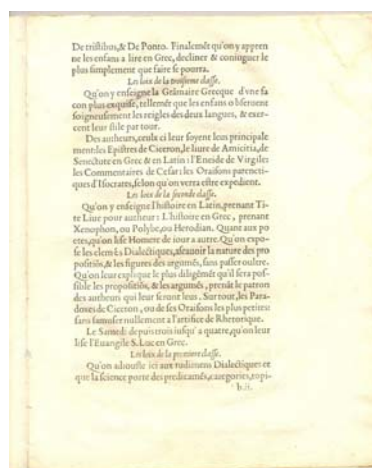 De tristibus,& De Ponto. Finalemēt qu'on y appren
ne les enfans a lire en Grec, decliner & coniuguer le
plus simplement que faire se pourra.
Les loix de la troisieme classe.
Qu'on y enseigne la Grāmaire Grecque d'vne fa
con plus exquise, tellemēt que les enfans obseruent
soigneusement les reigles des deux langues, & exer-
cent leur stile par tour.
Des autheurs, ceulx ci leur soyent leus principale
ment: les Epistres de Ciceron, le liure de Amicitia, de
Senectute en Grec & en Latin: l'Eneide de Virgile:
les Commentaires de Cesar: les Oraisons parencti-
ques d'Isocrates, selon qu'on verra estre expedient.
Les loix de la seconde classe.
Qu'on y enseigne l'histoire en Latin, prenant Ti-
te Liue pour autheur: L'histoire en Grec, prenant
Xenophon, ou Polybe, ou Herodian. Quant aux po
etes, qu'on lise Homere de iour a autre. Qu'on expo-
se les elemēs Dialectiques, scauoir la nature des pro
positiōs, & les figures des argumēs, sans passer oultre.
Qu'on leur explique le plus diligēmēt qu'il sera pos-
sible les propositiōs, & les argumēs, prenāt le patron
des autheurs qui leur seront leus. Sur tout, les Para-
doxes de Ciceron, ou de ses Oraisons les plus petites:
sans s'amuser nullement a l'artifice de Rhetorique.
Le Samedi depuis trois iusqu'a quatre, qu'on leur
lise l'Euangile S. Luc en Grec.
Les loix de la premiere classe.
Qu'on adiouste ici aux rudimens Dialectiques ce
que la science porte des predicamēs, categories, topi-
b.ii.